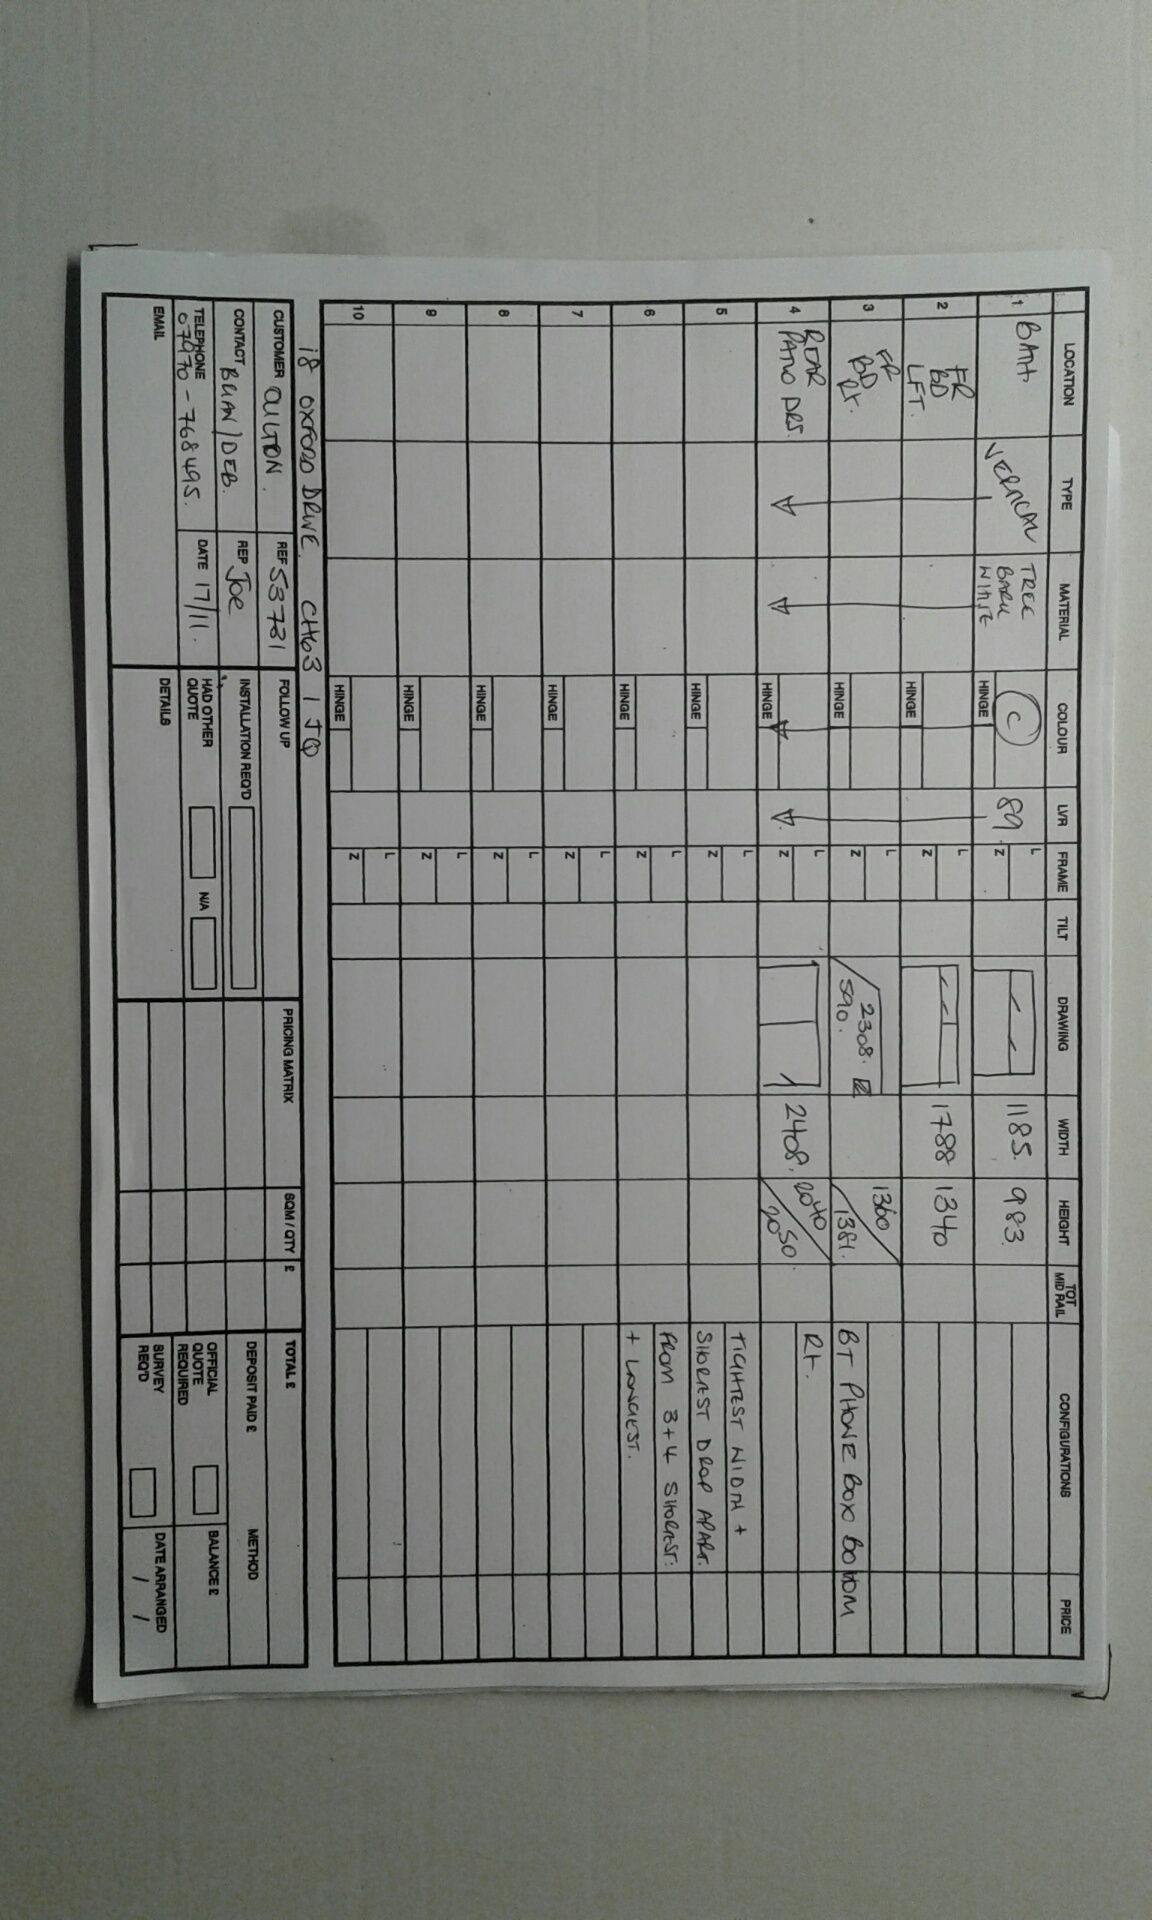 LOCATION TYPE MATERIAL COLOUR LVR FRAME TILT DRAWING WIDTH HEIGHT TOT MID RAIL CONFIGURATIONS PRICE
1 BATH. VERTICAL TREE BARK WHITE C HINGE 89 L Z 1185. 983.
2 FR BD LFT. HINGE L Z 1788 1340
3 FR BD RT. HINGE L Z 2308. 590. 1360 / 1381. BT PHONE BOX BOTTOM
4 REAR PATIO DRS. HINGE L Z 2408. 2040 / 2050. RT.
5 HINGE L Z TIGHTEST WIDTH +
SHORTEST DROP APART.
6 HINGE L Z FROM 3+4 SHORTEST.
+ LONGEST.
7 HINGE L Z
8 HINGE L Z
9 HINGE L Z
10 HINGE L Z
18 OXFORD DRIVE. CH63 1JQ
CUSTOMER OULTON. REF 53731 FOLLOW UP PRICING MATRIX SQM / QTY £ TOTAL £
CONTACT BRIAN / DEB. REP JOE INSTALLATION REQ'D DEPOSIT PAID £ METHOD
TELEPHONE 07970-768495. DATE 17/11. HAD OTHER QUOTE N/A OFFICIAL QUOTE REQUIRED BALANCE £
EMAIL DETAILS SURVEY REQ'D DATE ARRANGED / /